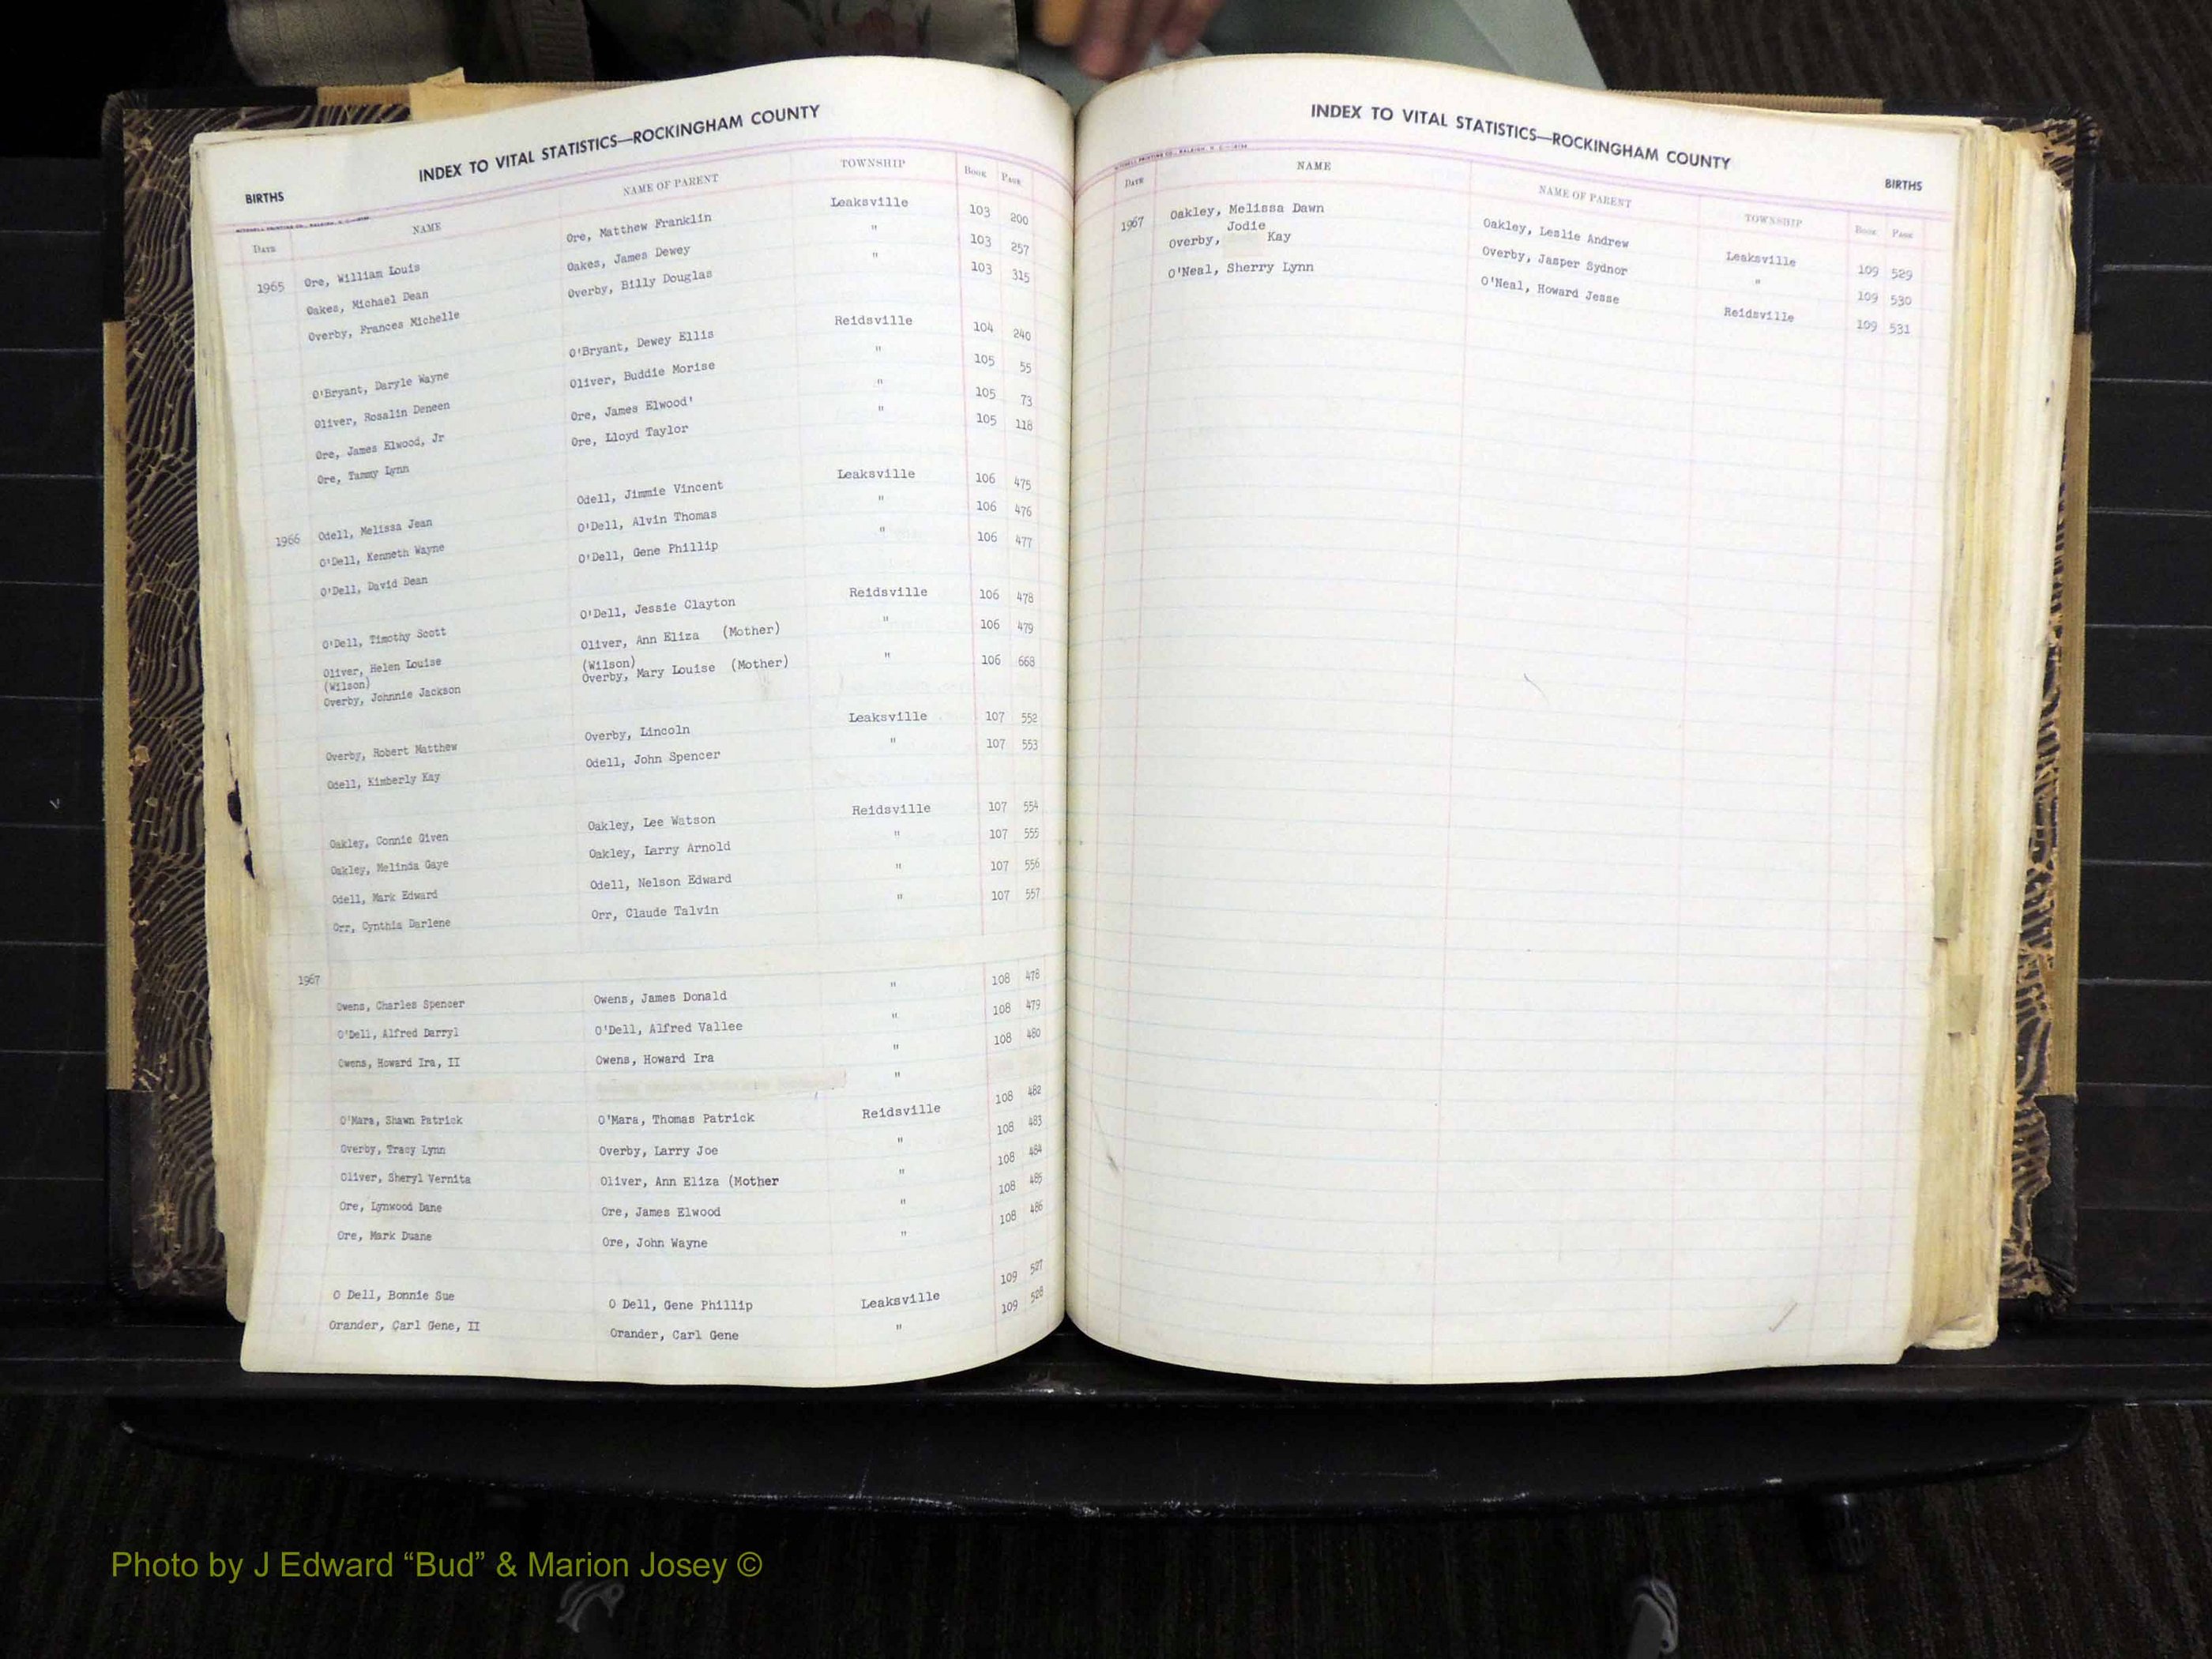 INDEX TO VITAL STATISTICS—ROCKINGHAM COUNTY
BIRTHS
DATE NAME NAME OF PARENT TOWNSHIP BOOK PAGE
1965 Ore, William Louis Ore, Matthew Franklin Leaksville 103 200
Oakes, Michael Dean Oakes, James Dewey " 103 257
Overby, Frances Michelle Overby, Billy Douglas " 103 315
O'Bryant, Daryle Wayne O'Bryant, Dewey Ellis Reidsville 104 240
Oliver, Rosalin Deneen Oliver, Buddie Morise " 105 55
Ore, James Elwood, Jr Ore, James Elwood' " 105 73
Ore, Tammy Lynn Ore, Lloyd Taylor " 105 118
1966 Odell, Melissa Jean Odell, Jimmie Vincent Leaksville 106 475
O'Dell, Kenneth Wayne O'Dell, Alvin Thomas " 106 476
O'Dell, David Dean O'Dell, Gene Phillip " 106 477
O'Dell, Timothy Scott O'Dell, Jessie Clayton Reidsville 106 478
Oliver, Helen Louise Oliver, Ann Eliza (Mother) " 106 479
(Wilson) (Wilson)
Overby, Johnnie Jackson Overby, Mary Louise (Mother) " 106 668
Overby, Robert Matthew Overby, Lincoln Leaksville 107 552
Odell, Kimberly Kay Odell, John Spencer " 107 553
Oakley, Connie Given Oakley, Lee Watson Reidsville 107 554
Oakley, Melinda Gaye Oakley, Larry Arnold " 107 555
Odell, Mark Edward Odell, Nelson Edward " 107 556
Orr, Cynthia Darlene Orr, Claude Talvin " 107 557
1967
Owens, Charles Spencer Owens, James Donald " 108 478
O'Dell, Alfred Darryl O'Dell, Alfred Vallee " 108 479
Owens, Howard Ira, II Owens, Howard Ira " 108 480
"
O'Mara, Shawn Patrick O'Mara, Thomas Patrick Reidsville 108 482
Overby, Tracy Lynn Overby, Larry Joe " 108 483
Oliver, Sheryl Vernita Oliver, Ann Eliza (Mother " 108 484
Ore, Lynwood Dane Ore, James Elwood " 108 485
Ore, Mark Duane Ore, John Wayne " 108 486
O Dell, Bonnie Sue O Dell, Gene Phillip Leaksville 109 527
Orander, Carl Gene, II Orander, Carl Gene " 109 528
INDEX TO VITAL STATISTICS—ROCKINGHAM COUNTY
BIRTHS
DATE NAME NAME OF PARENT TOWNSHIP BOOK PAGE
1967 Oakley, Melissa Dawn Oakley, Leslie Andrew Leaksville 109 529
Jodie
Overby, Kay Overby, Jasper Sydnor " 109 530
O'Neal, Sherry Lynn O'Neal, Howard Jesse Reidsville 109 531
Photo by J Edward “Bud” & Marion Josey ©